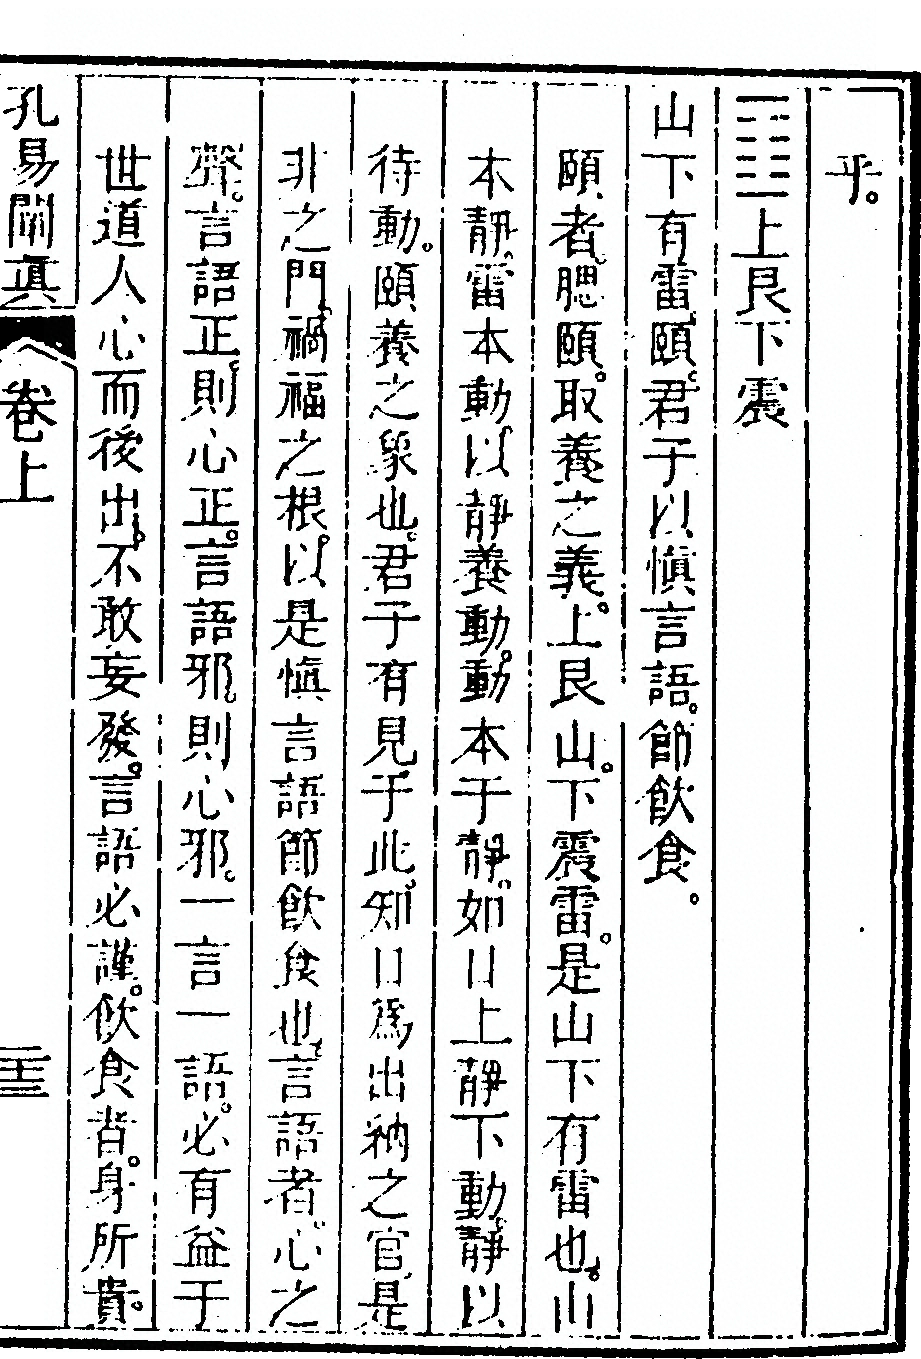 乎。
䷚上艮下震
山下有雷頤。君子以慎言語。節飲食。
頤者。腮頤。取養之義。上艮山。下震雷。是山下有雷也。山
本靜。雷本動。以靜養動。動本于靜。如口上靜下動。靜以
待動。頤養之象也。君子有見于此。知口為出納之官。是
非之門。禍福之根。以是慎言語節飲食也。言語者。心之
聲。言語正。則心正。言語邪。則心邪。一言一語。必有益于
世道人心而後出。不敢妄發。言語必謹。飲食者。身所貴。
孔易闡真 卷上 二十三